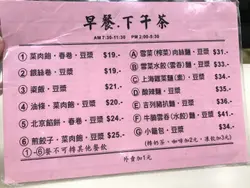 早餐．下午茶
AM 7:30-11:30　PM 2:00-5:30
① 菜肉飽・春卷・豆漿 $19.-
② 銀絲卷・豆漿 $20.-
③ 粢飯・豆漿 $21.-
④ 油條・粢飯・豆漿
⑤ 北京餡餅・豆漿
⑥ 煎餃子・豆漿
①-⑥餐不可轉其他餐飲
Ⓐ 雪菜(榨菜)肉絲麵・豆漿 $31.-
Ⓑ 雪菜水餃(雲吞)麵・豆漿
Ⓒ 上海雞菜麵(飯)・豆漿
Ⓓ 酸辣麵・豆漿
Ⓔ 吉列豬扒麵・豆漿
Ⓕ 牛腩雲吞(水餃)麵・豆漿
Ⓖ 小籠包・豆漿 $31.-
(轉奶茶・咖啡加2元 / 凍飲加3元)
外賣加1元